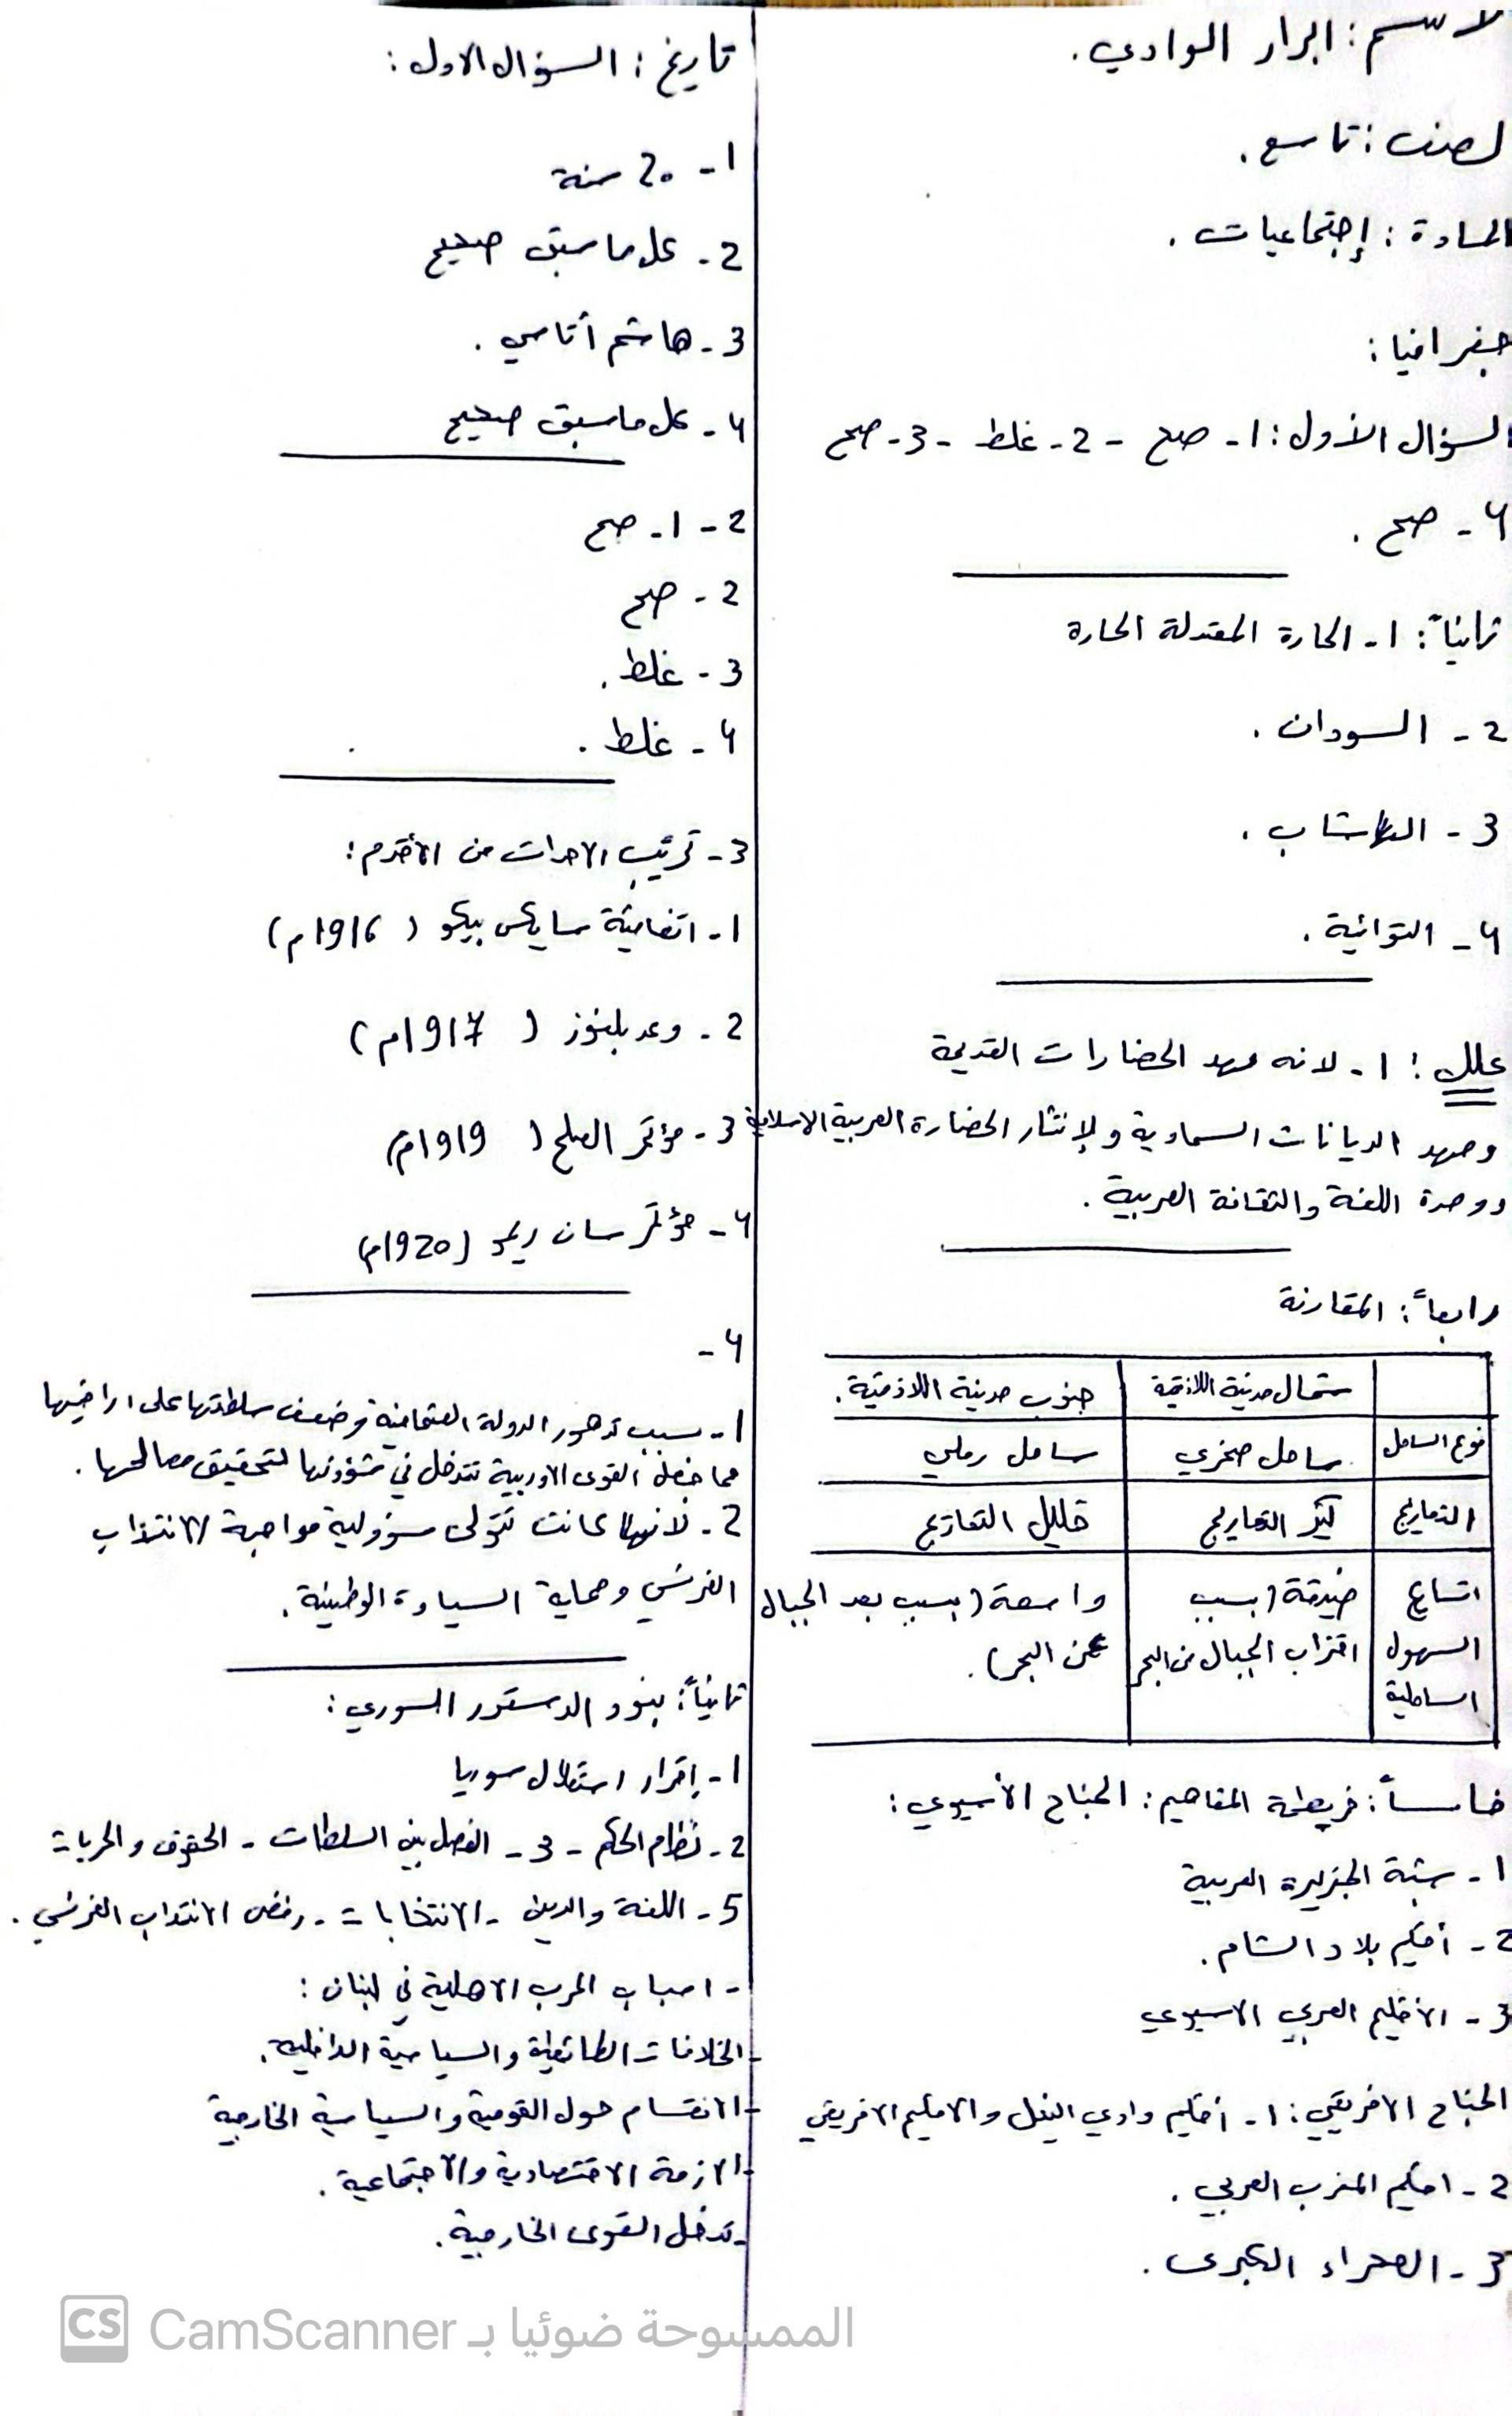 لاسم : ابرار الوادي .
لصف : تاسع .
المادة : إجتماعيات .
جغرافيا :
السؤال الأول : 1 - صح - 2 - غلط - 3 - صح
4 - صح .
ثانياً : 1 - الحارة المعتدلة الحارة
2 - السودان .
3 - الشاب .
4 - التوائية .
علل : 1 - لانه مهد الحضارات القديمة
ومهد الديانات السماوية و لإنتشار الحضارة العربية الاسلامية
ووحدة اللغة والثقافة العربية .
رابعاً : المقارنة
شمال مدينة اللاذقية | جنوب مدينة اللاذقية .
نوع الساحل | ساحل صخري | ساحل رملي
التعاريج | كثير التعاريج | قليل التعاريج
اتساع | ضيقة ( بسبب | واسعة ( بسبب بعد الجبال
السهول | اقتراب الجبال من البحر | عن البحر ) .
الساحلية
خامساً : خريطة المفاهيم : الجناح الأسيوي :
1 - شبة الجزيرة العربية
2 - أقليم بلاد الشام .
3 - الأقليم العربي الاسيوي
الجناح الافريقي : 1 - أقليم وادي النيل والاقليم الافريقي
2 - اقليم المغرب العربي .
3 - الصحراء الكبرى .
تاريخ : السؤال الاول :
1 - 20 سنة
2 - كل ما سبق صحيح
3 - هاشم أتاسي .
4 - كل ما سبق صحيح
2 - 1 - صح
2 - صح
3 - غلط .
4 - غلط .
3 - ترتيب الاحداث من الأقدم :
1 - اتفاقية سايكس بيكو ( 1916م )
2 - وعد بلفوز ( 1917م )
3 - مؤتمر الصلح ( 1919م )
4 - مؤتمر سان ريمو ( 1920م )
4 -
1 - سبب تدهور الدولة العثمانية وضعف سلطتها على اراضيها
مما جعل القوى الاوربية تتدخل في شؤونها لتحقيق مصالحها .
2 - لانها كانت تتولى مسؤولية مواجهة الانتداب
الفرنسي وحماية السيادة الوطنية .
ثانياً : بنود الدستور السوري :
1 - إقرار استقلال سوريا
2 - نظام الحكم - 3 - الفصل بين السلطات - الحقوق والحريات
5 - اللغة والدين - الانتخابات - رفض الانتداب الفرنسي .
- اسباب الحرب الاهلية في لبنان :
- الخلافات الطائفية والسياسية الداخلية .
- الانقسام حول القومية والسياسية الخارجية
- الازمة الاقتصادية والاجتماعية .
- تدخل القوى الخارجية .
CS CamScanner الممسوحة ضوئيا بـ